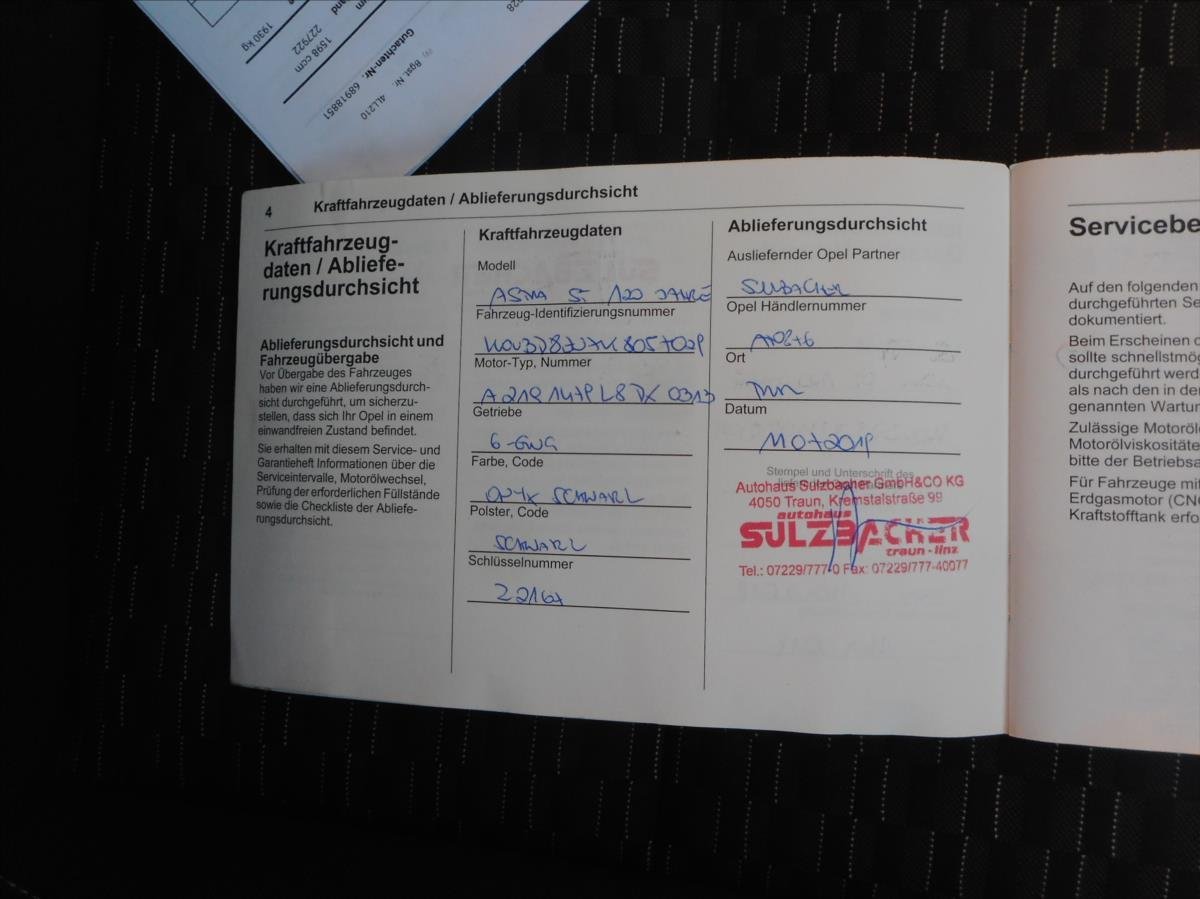 828
1930 kg
227922
1598 ccm
Gutachten-Nr. 68918851
Bgst. Nr. 4LL210
4 Kraftfahrzeugdaten / Ablieferungsdurchsicht
Kraftfahrzeug-
daten / Abliefe-
rungsdurchsicht
Ablieferungsdurchsicht und
Fahrzeugübergabe
Vor Übergabe des Fahrzeuges
haben wir eine Ablieferungsdurch-
sicht durchgeführt, um sicherzu-
stellen, dass sich Ihr Opel in einem
einwandfreien Zustand befindet.
Sie erhalten mit diesem Service- und
Garantieheft Informationen über die
Serviceintervalle, Motorölwechsel,
Prüfung der erforderlichen Füllstände
sowie die Checkliste der Abliefe-
rungsdurchsicht.
Kraftfahrzeugdaten
Modell
120 JAHRE
Fahrzeug-Identifizierungsnummer
Motor-Typ, Nummer
Getriebe
6-GWG
Farbe, Code
ONYX SCHWARZ
Polster, Code
SCHWARZ
Schlüsselnummer
Ablieferungsdurchsicht
Ausliefernder Opel Partner
Opel Händlernummer
Ort
Datum
Stempel und Unterschrift des
Autohaus Sulzbacher GmbH&CO KG
4050 Traun, Kremstalstraße 99
autohaus
SULZBACHER
traun - linz
Tel.: 07229/777-0 Fax: 07229/777-40077
Servicebe
Auf den folgenden
durchgeführten Se
dokumentiert.
Beim Erscheinen d
sollte schnellstmög
durchgeführt werd
als nach den in de
genannten Wartun
Zulässige Motoröl
Motorölviskositäte
bitte der Betriebsa
Für Fahrzeuge mit
Erdgasmotor (CNG
Kraftstofftank erfo